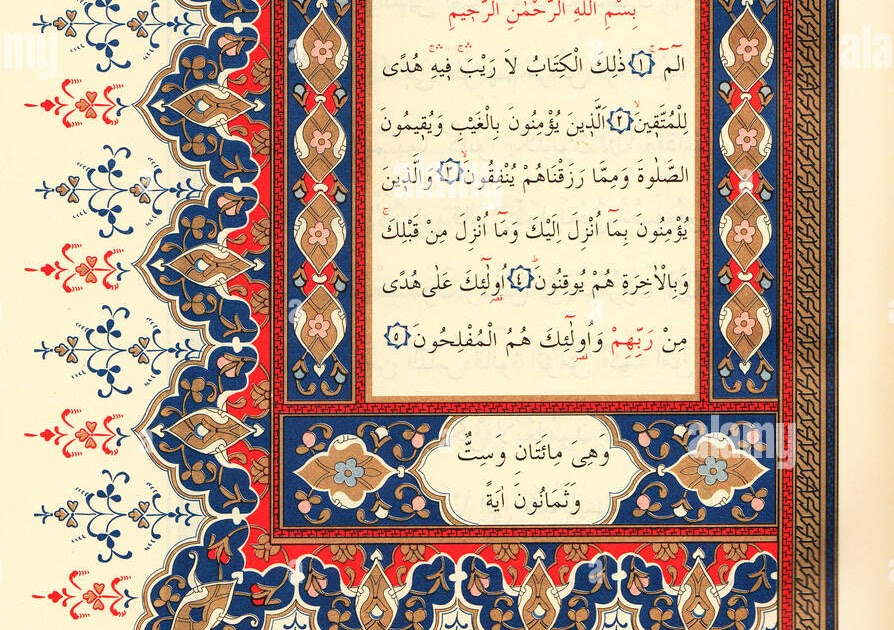 بِسْمِ اللهِ الرَّحْمٰنِ الرَّحٖيمِ
الٓمٓ ۚ ﴿١﴾ ذٰلِكَ الْكِتَابُ لَا رَيْبَ ۛ فٖيهِ ۛ هُدًى
لِلْمُتَّقٖينَ ۙ ﴿٢﴾ اَلَّذٖينَ يُؤْمِنُونَ بِالْغَيْبِ وَيُقٖيمُونَ
الصَّلٰوةَ وَمِمَّا رَزَقْنَاهُمْ يُنْفِقُونَ ۙ ﴿٣﴾ وَالَّذٖينَ
يُؤْمِنُونَ بِمَٓا اُنْزِلَ اِلَيْكَ وَمَٓا اُنْزِلَ مِنْ قَبْلِكَ ۚ
وَبِالْاٰخِرَةِ هُمْ يُوقِنُونَ ۜ ﴿٤﴾ اُولٰٓئِكَ قصر عَلٰى هُدًى
مِنْ رَبِّهِمْ وَاُولٰٓئِكَ قصر هُمُ الْمُفْلِحُونَ ﴿٥﴾
وَهِىَ مِائَتَانِ وَسِتٌّ
وَثَمَانُونَ اٰيَةً
alamy
alamy